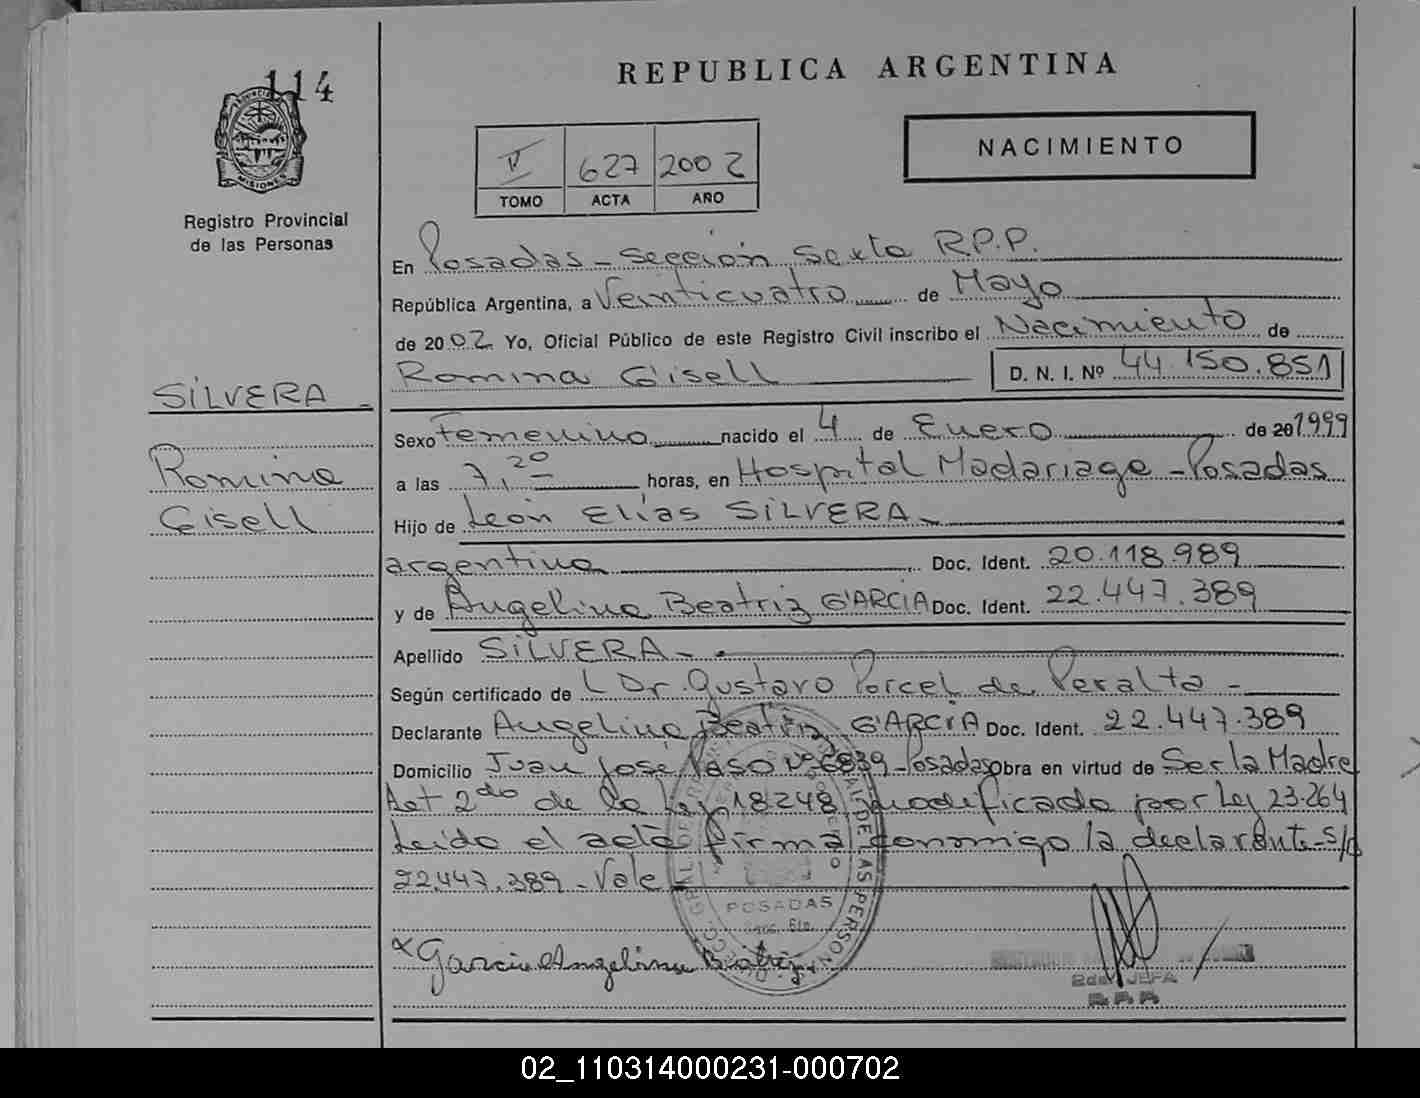 REPUBLICA ARGENTINA
114
PROVINCIA
MISIONES
Registro Provincial
de las Personas
V 627 2002
TOMO ACTA AÑO
NACIMIENTO
En Posadas - Sección Sexta R.P.P.
República Argentina, a Veinticuatro de Mayo
de 2002 Yo, Oficial Público de este Registro Civil inscribo el Nacimiento de
Romina Gisell D. N. I. Nº 44.150.851
SILVERA
Romina
Gisell
Sexo Femenino nacido el 4 de Enero de 20 1999
a las 7,20 horas, en Hospital Madariaga - Posadas
Hijo de León Elías SILVERA
argentino Doc. Ident. 20.118.989
y de Angelina Beatriz GARCIA Doc. Ident. 22.447.389
Apellido SILVERA -
Según certificado de L Dr. Gustavo Porcel de Peralta -
Declarante Angelina Beatriz GARCIA Doc. Ident. 22.447.389
Domicilio Juan José Paso Nº 6839 - Posadas Obra en virtud de Ser la Madre
Art 2do de la Ley 18248 modificado por Ley 23.264
Leído el acta firma conmigo la declarante - S/r
22.447.389 - Vale
POSADAS
Secc. 6ta.
x Garcia Angelina Beatriz
2da. JEFA
R.P.P.
02_110314000231-000702